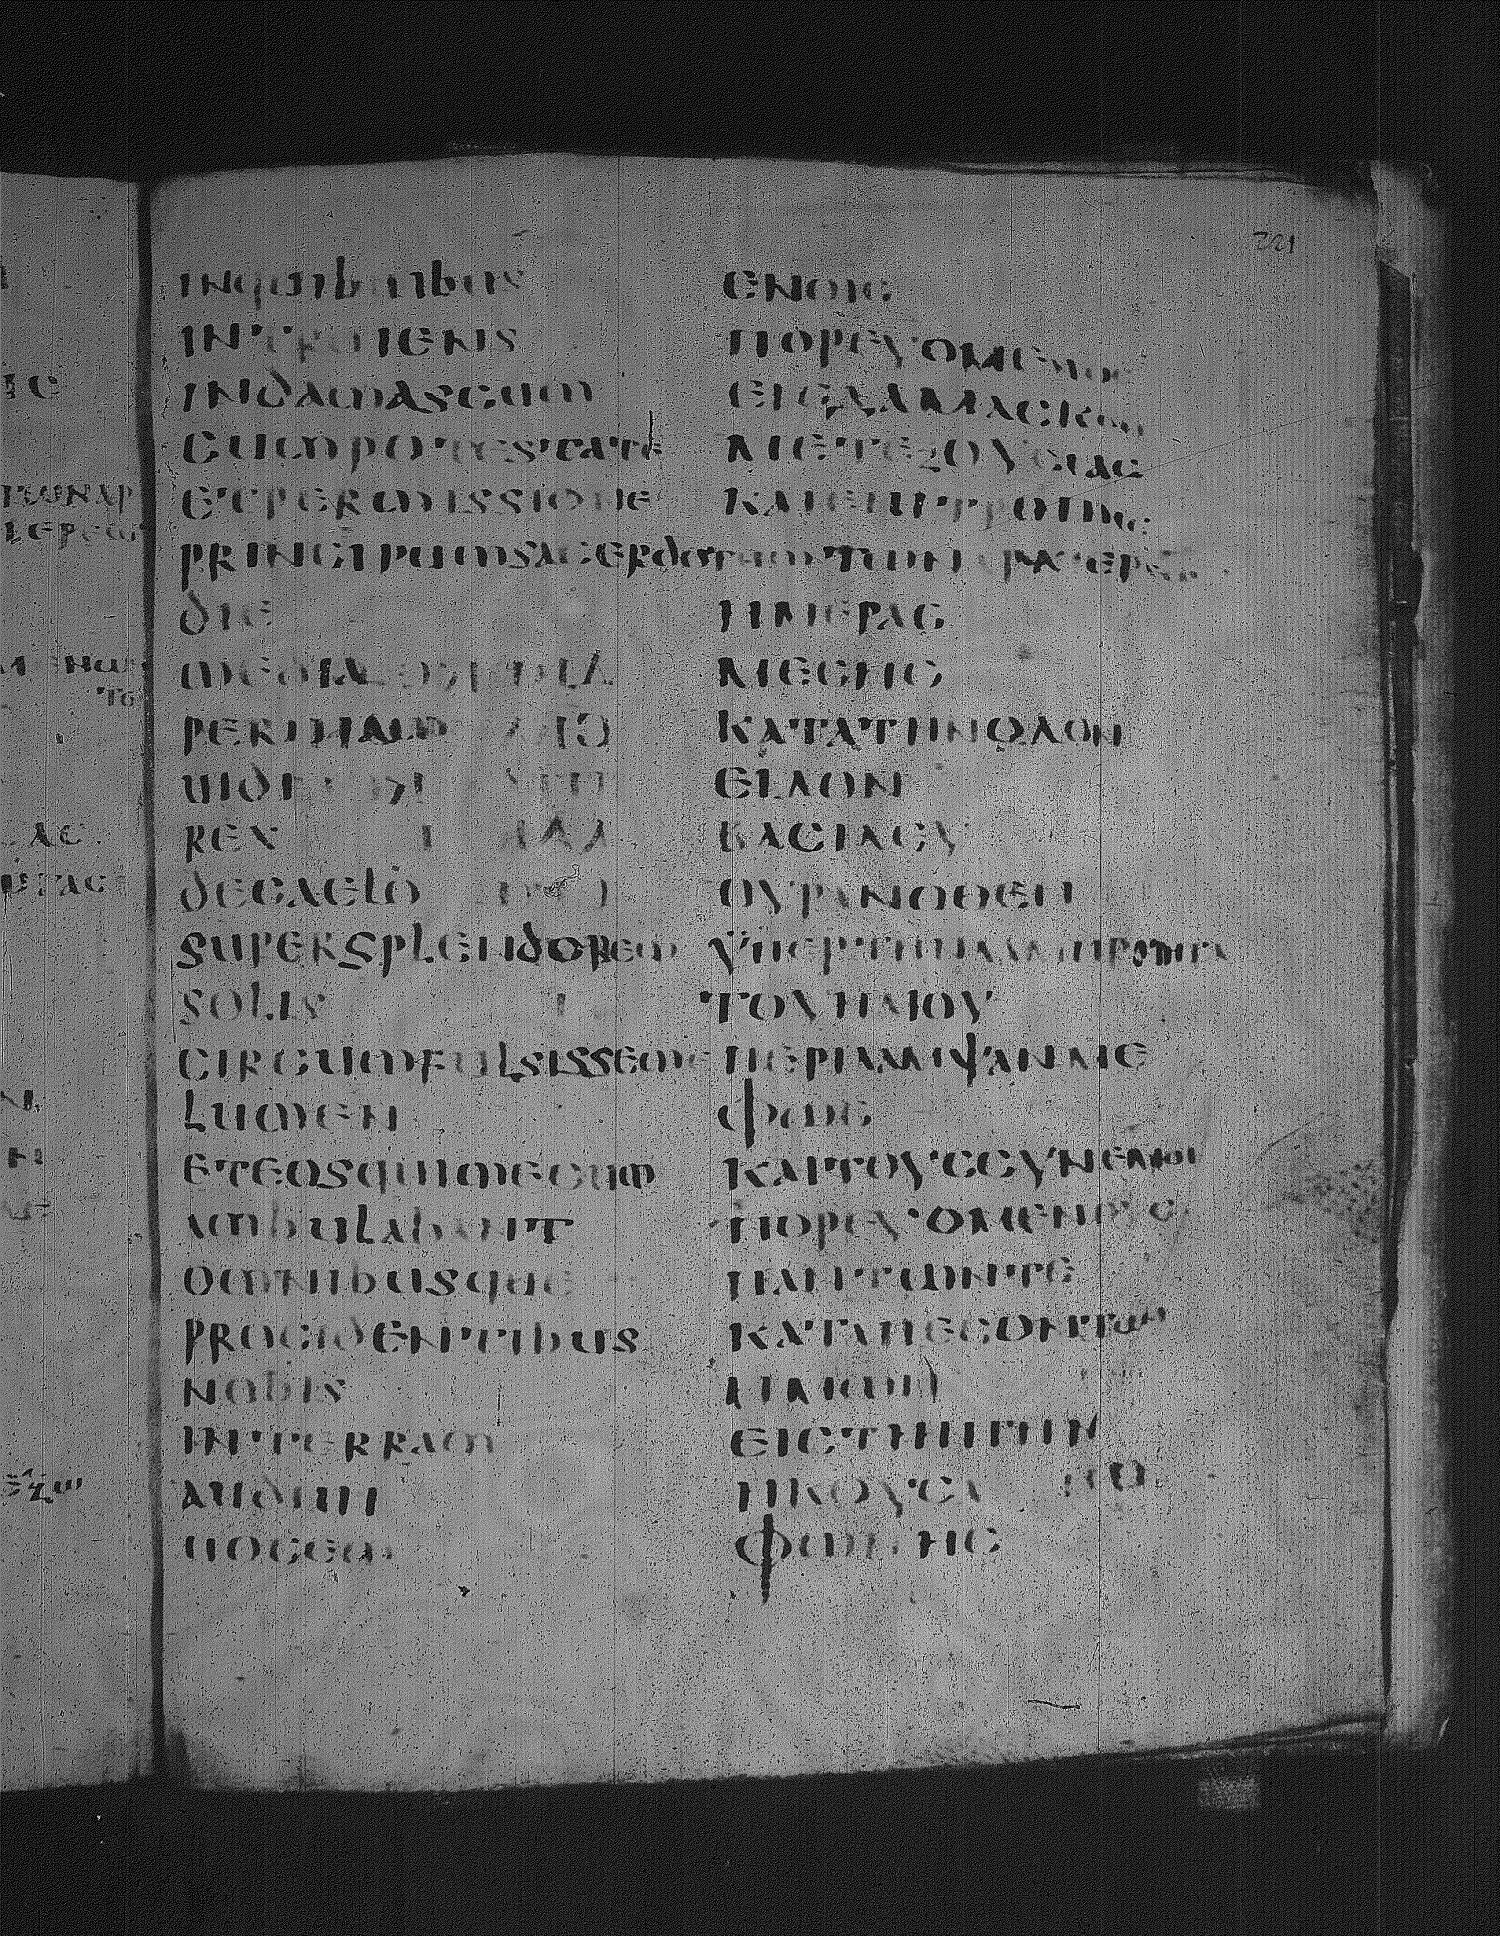 INTROIENS
INDAMASCUM
CUMPOTESTATE
ETPERMISSIONE
PRINCIPUMSACERDOTUM
DIE
MEDIA
REX
DECAELO
SUPERSPLENDOREM
SOLIS
CIRCUMFULSISSEME
LUMEN
ETEOSQUIMECUM
AMBULABANT
OMNIBUSQUE
PROCIDENTIBUS
NOBIS
INTERRAM
AUDIUI
UOCEM
221
ΕΝΟΙϹ
ΠΟΡΕΥΟΜΕΝΟϹ
ΕΙϹΔΑΜΑϹΚΟΝ
ΜΕΤΕΞΟΥϹΙΑϹ
ΚΑΙΕΠΙΤΡΟΠΗϹ
ΤΩΝΑΡΧΙΕΡΕΩΝ
ΗΜΕΡΑϹ
ΜΕϹΗϹ
ΚΑΤΑΤΗΝΟΔΟΝ
ΕΙΔΟΝ
ΒΑϹΙΛΕΥ
ΟΥΡΑΝΟΘΕΝ
ΫΠΕΡΤΗΝΛΑΜΠΡΟΤΗΤΑ
ΤΟΥΗΛΙΟΥ
ΠΕΡΙΛΑΜΨΑΝΜΕ
ΦΩϹ
ΚΑΙΤΟΥϹϹΥΝΕΜΟΙ
ΠΟΡΕΥΟΜΕΝΟΥϹ
ΠΑΝΤΩΝΤΕ
ΚΑΤΑΠΕϹΟΝΤΩΝ
ΗΜΩΝ
ΕΙϹΤΗΝΓΗΝ
ΗΚΟΥϹΑ
ΦΩΝΗϹ